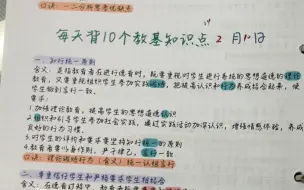 口诀:一二分析思考优缺点
每天背10个教基知识点 2月1日
一、知行统一原则
含义:是指教育者在进行德育时,既要重视对学生进行系统的思想道德的理论
教育,又要重视组织学生参加实践锻炼,把提高认识和行为养成结合起来,使
学生做到言行一致。
要求:
1.加强理论教育,提高学生的思想道德认识。
2.组织和引导学生参加社会实践,通过实践活动加深认识,增强情感体验,养成
良好的行为习惯。
3.对学生的评价和要求要坚持知行统一的原则。
4.教育者要以身作则,严于律己,言行一致。
口诀:理论实践行为(含义)统一认组言行
二、尊重信任学生和严格要求学生相结合